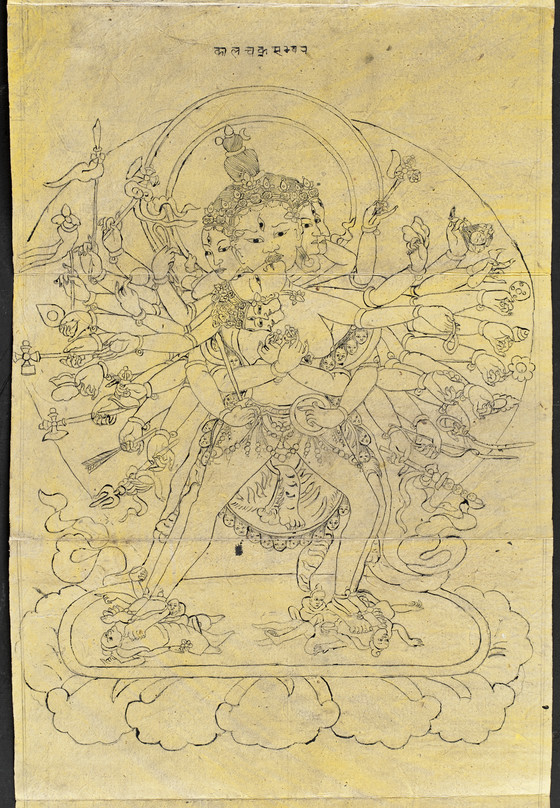 कालचक्रसम्वर